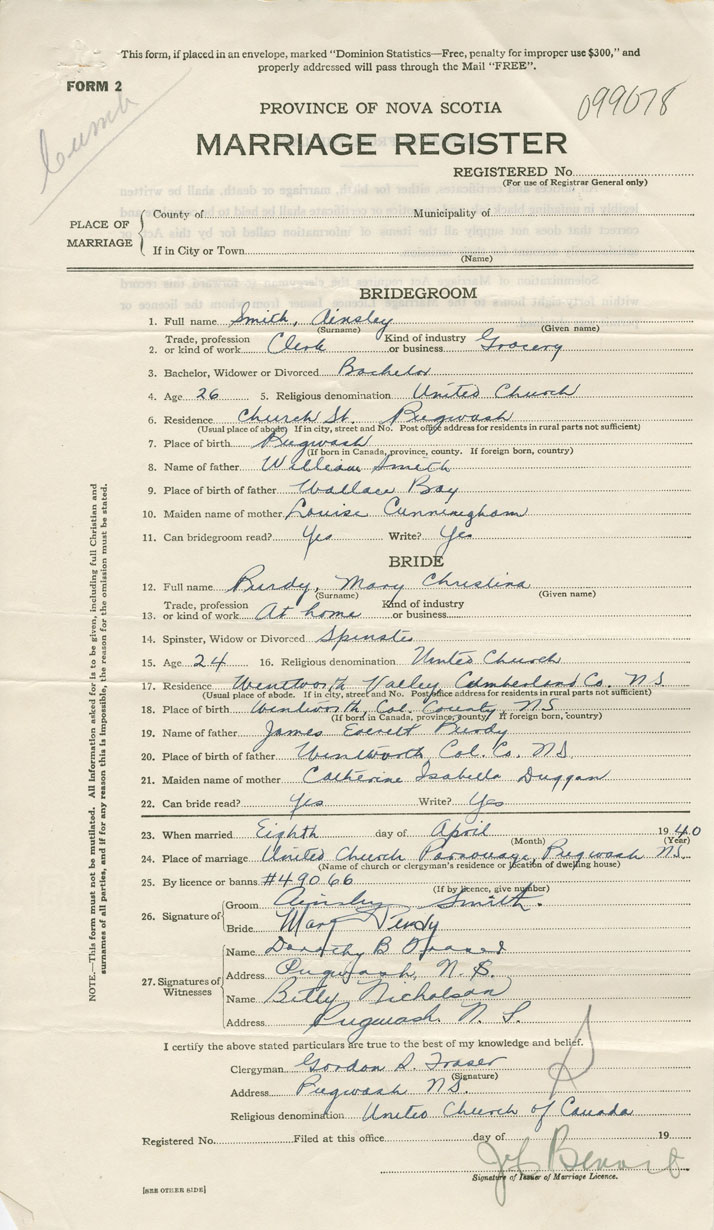 This form, if placed in an envelope, marked "Dominion Statistics—Free, penalty for improper use $300," and
properly addressed will pass through the Mail "FREE".
FORM 2
Cumb
099078
PROVINCE OF NOVA SCOTIA
MARRIAGE REGISTER
REGISTERED No.
(For use of Registrar General only)
PLACE OF MARRIAGE
County of
Municipality of
If in City or Town
(Name)
BRIDEGROOM
1. Full name Smith, Ainsley
(Surname) (Given name)
2. Trade, profession or kind of work Clerk Kind of industry or business Grocery
3. Bachelor, Widower or Divorced Bachelor
4. Age 26 5. Religious denomination United Church
6. Residence Church St. Pugwash
(Usual place of abode. If in city, street and No. Post office address for residents in rural parts not sufficient)
7. Place of birth Pugwash
(If born in Canada, province, county. If foreign born, country)
8. Name of father William Smith
9. Place of birth of father Wallace Bay
10. Maiden name of mother Louise Cunningham
11. Can bridegroom read? Yes Write? Yes
BRIDE
12. Full name Purdy, Mary Christina
(Surname) (Given name)
13. Trade, profession or kind of work At home Kind of industry or business
14. Spinster, Widow or Divorced Spinster
15. Age 24 16. Religious denomination United Church
17. Residence Wentworth Valley Cumberland Co. N.S.
(Usual place of abode. If in city, street and No. Post office address for residents in rural parts not sufficient)
18. Place of birth Wentworth, Col. County, N.S
(If born in Canada, province, county. If foreign born, country)
19. Name of father James Everett Purdy
20. Place of birth of father Wentworth Col. Co. N.S
21. Maiden name of mother Catherine Isabella Duggan
22. Can bride read? Yes Write? Yes
23. When married Eighth day of April 1940
(Month) (Year)
24. Place of marriage United Church Parsonage, Pugwash N.S.
(Name of church or clergyman's residence or location of dwelling house)
25. By licence or banns #49066
(If by licence, give number)
26. Signature of
Groom Ainsley Smith.
Bride Mary Purdy
27. Signatures of Witnesses
Name Dorothy B
Address Pugwash, N.S.
Name Betty Nicholson
Address Pugwash. N.S.
I certify the above stated particulars are true to the best of my knowledge and belief.
Clergyman Gordon D. Fraser
(Signature)
Address Pugwash N.S.
Religious denomination United Church of Canada
Registered No. Filed at this office day of 19
Signature of Issuer of Marriage Licence.
[SEE OTHER SIDE]
NOTE.—This form must not be mutilated. All information asked for is to be given, including full Christian and
surnames of all parties, and if for any reason this is impossible, the reason for the omission must be stated.